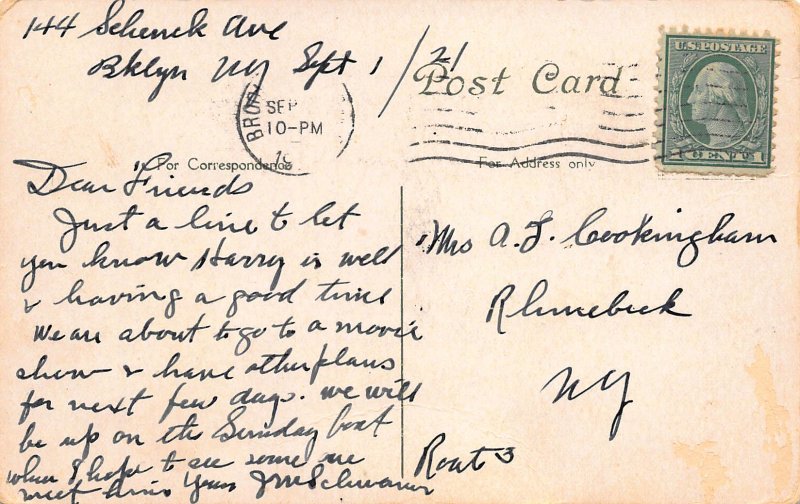 144 Schenck Ave
Bklyn NY Sept 1/21
Post Card
U.S. POSTAGE
1 CENT 1
SEP
10-PM
For Correspondence
For Address only
Dear Friends
Just a line to let
you know Harry is well
& having a good time
We are about to go to a movie
show & have other plans
for next few days. We will
be up on the Sunday boat
when I hope to see some one
meet him Yours
Mrs A. F. Cookingham
Rhinebeck
NY
Rout 3